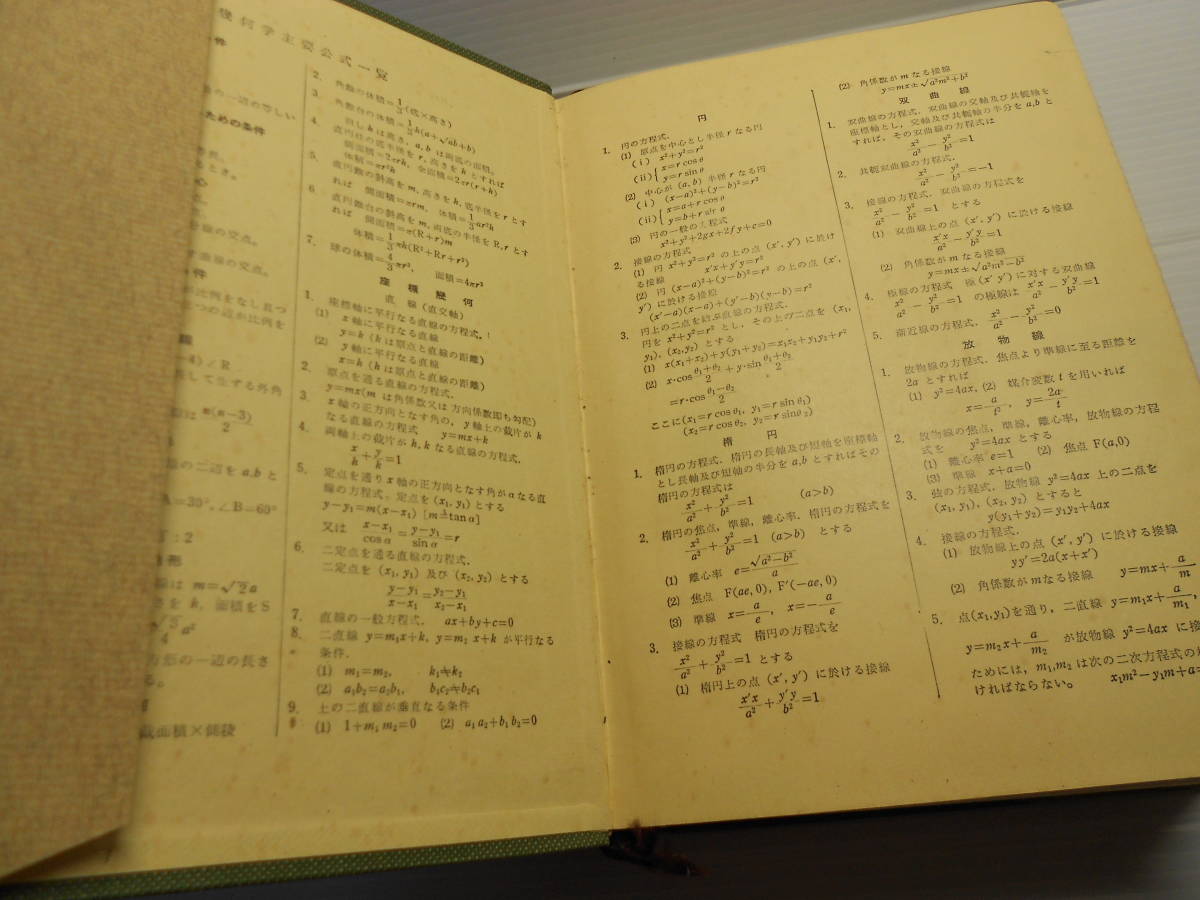 幾何学主要公式一覧
件
の一辺の等しい
ための条件
とき。
心
線の交点。
曲線の交点。
件
比例をなし且つ
つの辺が比例を
線
-4)∠R
長して生ずる外角
n(n-3)/2
線の二辺を a,b と
A=30°, ∠B=60°
:2
形
線は m=√2a
さを h, 面積を S
√3/4 a²
方形の一辺の長さ
る。
截面積×側稜
2. 角錐の体積=1/3(底×高さ)
3. 角錐台の体積=1/3h(a+√ab+b)
但し h は高さ, a, b は両底の面積。
4. 直円柱の底半径を r, 高さを h とすれば
側面積=2πrh, 全面積=2πr(r+h)
体積=πr²h
5. 直円錐の斜高を m, 高さを h, 底半径を r とす
れば 側面積=πrm, 体積=1/3πr²h
6. 直円錐台の斜高を m, 両底の半径を R, r とす
れば 側面積=π(R+r)m
体積=1/3πh(R²+Rr+r²)
7. 球の体積=4/3πr³, 面積=4πr²
座標幾何
直線(直交軸)
1. 座標軸に平行なる直線の方程式.
(1) x 軸に平行なる直線
y=k (k は原点と直線の距離)
(2) y 軸に平行なる直線
x=h (h は原点と直線の距離)
2. 原点を通る直線の方程式.
y=mx(m は角係数又は方向係数即ち勾配)
3. x 軸の正方向となす角の, y 軸上の截片が k
なる直線の方程式 y=mx+k
4. 両軸上の截片が h, k なる直線の方程式.
x/h+y/k=1
5. 定点を通り x 軸の正方向となす角が α なる直
線の方程式, 定点を (x₁, y₁) とする
y-y₁=m(x-x₁) [m=tanα]
又は x-x₁/cosα=y-y₁/sinα=r
6. 二定点を通る直線の方程式.
二定点を (x₁, y₁) 及び (x₂, y₂) とする
y-y₁/x-x₁=y₂-y₁/x₂-x₁
7. 直線の一般方程式. ax+by+c=0
8. 二直線 y=m₁x+k, y=m₂ x+k が平行なる
条件.
(1) m₁=m₂, k₁≠k₂
(2) a₁b₂=a₂b₁, b₁c₂≠b₂c₁
9. 上の二直線が垂直なる条件
(1) 1+m₁m₂=0 (2) a₁a₂+b₁b₂=0
円
1. 円の方程式.
(1) 原点を中心とし半径 r なる円
(i) x²+y²=r²
(ii){x=r cosθ
y=r sinθ
(2) 中心が (a, b) 半径 r なる円
(i) (x-a)²+(y-b)²=r²
(ii){x=a+r cosθ
y=b+r sinθ
(3) 円の一般の方程式
x²+y²+2gx+2fy+c=0
2. 接線の方程式
(1) 円 x²+y²=r² の上の点 (x′, y′) に於け
る接線 x′x+y′y=r²
(2) 円 (x-a)²+(y-b)²=r² の上の点 (x′,
y′) に於ける接線
(x′-a)(x-a)+(y′-b)(y-b)=r²
3. 円上の二点を結ぶ直線の方程式.
円を x²+y²=r² とし, その上の二点を (x₁,
y₁), (x₂, y₂) とする
(1) x(x₁+x₂)+y(y₁+y₂)=x₁x₂+y₁y₂+r²
(2) x·cosθ₁+θ₂/2+y·sinθ₁+θ₂/2
=r·cosθ₁-θ₂/2
ここに(x₁=r cosθ₁, y₁=r sinθ₁)
(x₂=r cosθ₂, y₂=r sinθ₂)
楕円
1. 楕円の方程式. 楕円の長軸及び短軸を座標軸
とし長軸及び短軸の半分を a, b とすればその
楕円の方程式は
x²/a²+y²/b²=1 (a>b)
2. 楕円の焦点, 準線, 離心率. 楕円の方程式を
x²/a²+y²/b²=1 (a>b) とする
(1) 離心率 e=√a²-b²/a
(2) 焦点 F(ae, 0), F′(-ae, 0)
(3) 準線 x=a/e, x=-a/e
3. 接線の方程式 楕円の方程式を
x²/a²+y²/b²=1 とする
(1) 楕円上の点 (x′, y′) に於ける接線
x′x/a²+y′y/b²=1
(2) 角係数が m なる接線
y=mx±√a²m²+b²
双曲線
1. 双曲線の方程式. 双曲線の交軸及び共軛軸を
座標軸とし, 交軸及び共軛軸の半分を a, b と
すれば, その双曲線の方程式は
x²/a²-y²/b²=1
2. 共軛双曲線の方程式.
x²/a²-y²/b²=-1
3. 接線の方程式. 双曲線の方程式を
x²/a²-y²/b²=1 とする
(1) 双曲線上の点 (x′, y′) に於ける接線
x′x/a²-y′y/b²=1
(2) 角係数が m なる接線
y=mx±√a²m²-b²
4. 極線の方程式 極 (x′, y′) に対する双曲線
x²/a²-y²/b²=1 の極線は x′x/a²-y′y/b²=1
5. 漸近線の方程式. x²/a²-y²/b²=0
放物線
1. 放物線の方程式. 焦点より準線に至る距離を
2a とすれば
(1) y²=4ax, (2) 媒介変数 t を用いれば
x=a/t², y=2a/t
2. 放物線の焦点, 準線, 離心率, 放物線の方程
式を y²=4ax とする
(1) 離心率 e=1 (2) 焦点 F(a,0)
(3) 準線 x+a=0
3. 弦の方程式. 放物線 y²=4ax 上の二点を
(x₁, y₁), (x₂, y₂) とすると
y(y₁+y₂)=y₁y₂+4ax
4. 接線の方程式.
(1) 放物線上の点 (x′, y′) に於ける接線
yy′=2a(x+x′)
(2) 角係数が m なる接線 y=mx+a/m
5. 点(x₁,y₁)を通り, 二直線 y=m₁x+a/m₁,
y=m₂x+a/m₂ が放物線 y²=4ax に接
ためには, m₁,m₂ は次の二次方程式の
ければならない。 x₁m²-y₁m+a=